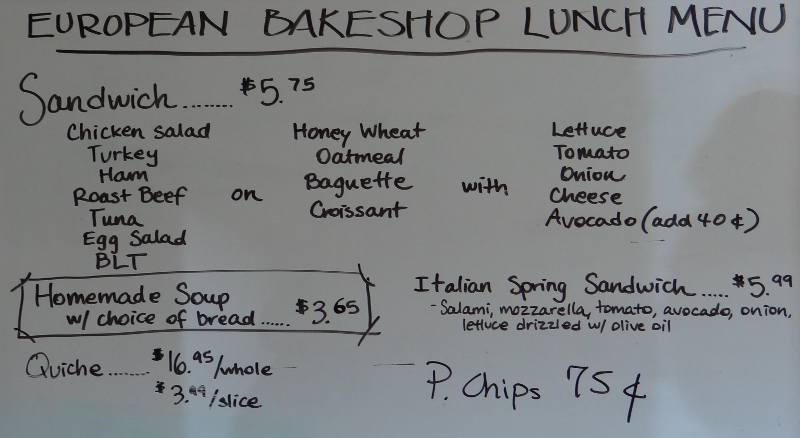 EUROPEAN BAKESHOP LUNCH MENU
Sandwich........ $5.75
Chicken Salad
Turkey
Ham
Roast Beef
Tuna
Egg Salad
BLT
on
Honey Wheat
Oatmeal
Baguette
Croissant
with
Lettuce
Tomato
Onion
Cheese
Avocado (add 40¢)
Homemade Soup
w/ choice of bread...... $3.65
Italian Spring Sandwich..... $5.99
- Salami, mozzarella, tomato, avocado, onion,
lettuce drizzled w/ olive oil
Quiche........ $16.95/whole
$3.99/slice
P. Chips 75¢